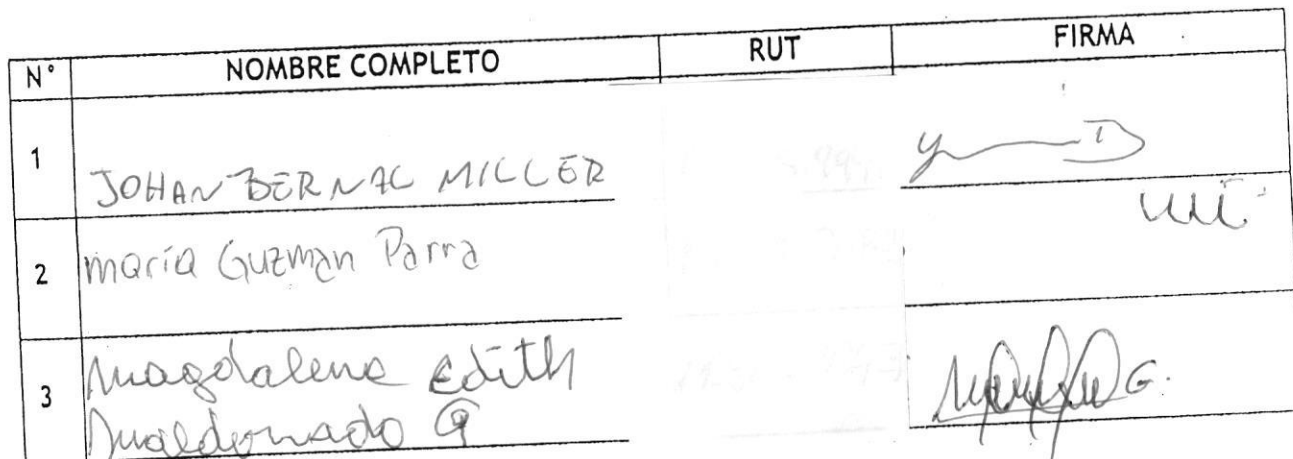 N° NOMBRE COMPLETO RUT FIRMA
1 JOHAN BERNAL MILLER
2 María Guzmán Parra
3 Magdalena Edith
Maldonado G